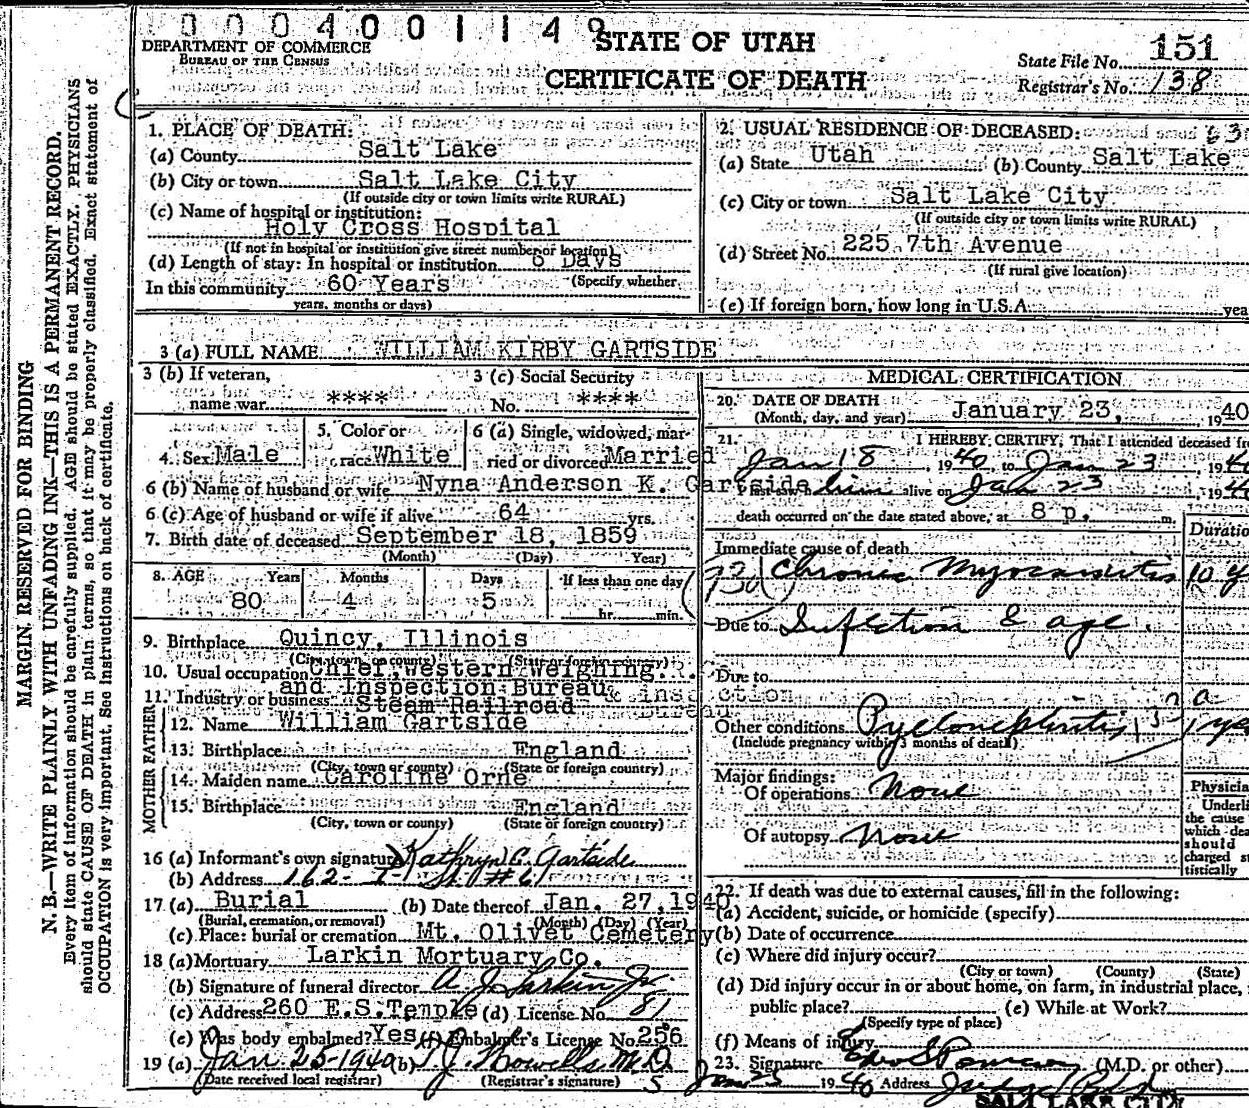 0004001149
STATE OF UTAH
CERTIFICATE OF DEATH
DEPARTMENT OF COMMERCE
BUREAU OF THE CENSUS
State File No. 151
Registrar's No. 138
MARGIN RESERVED FOR BINDING
N. B.—WRITE PLAINLY WITH UNFADING INK—THIS IS A PERMANENT RECORD.
Every item of information should be carefully supplied. AGE should be stated EXACTLY. PHYSICIANS
should state CAUSE OF DEATH in plain terms, so that it may be properly classified. Exact statement of
OCCUPATION is very important. See instructions on back of certificate.
1. PLACE OF DEATH:
(a) County Salt Lake
(b) City or town Salt Lake City
(If outside city or town limits write RURAL)
(c) Name of hospital or institution:
Holy Cross Hospital
(If not in hospital or institution give street number or location)
(d) Length of stay: In hospital or institution Days
In this community 60 Years (Specify whether
years, months or days)
2. USUAL RESIDENCE OF DECEASED:
(a) State Utah (b) County Salt Lake
(c) City or town Salt Lake City
(If outside city or town limits write RURAL)
(d) Street No. 225 7th Avenue
(If rural give location)
(e) If foreign born, how long in U.S.A. yea
3 (a) FULL NAME WILLIAM KIRBY GARTSIDE
3 (b) If veteran,
name war ****
3 (c) Social Security
No. ****
4. Sex Male
5. Color or
race White
6 (a) Single, widowed, mar-
ried or divorced Married
6 (b) Name of husband or wife Nyna Anderson K. Gartside
6 (c) Age of husband or wife if alive 64 yrs.
7. Birth date of deceased September 18, 1859
(Month) (Day) Year)
8. AGE Years Months Days If less than one day
80 4 5 hr. min.
9. Birthplace Quincy, Illinois
(City, town, or county) (State or foreign country)
10. Usual occupation Chief, Western Weighing
and Inspection Bureau
11. Industry or business Steam Railroad
FATHER
12. Name William Gartside
13. Birthplace England
(City, town or county) (State or foreign country)
MOTHER
14. Maiden name Caroline Orne
15. Birthplace England
(City, town or county) (State or foreign country)
16 (a) Informant's own signature Kathryn C. Gartside
(b) Address 162- I- St. #6
17 (a) Burial (b) Date thereof Jan. 27, 1940
(Burial, cremation, or removal) (Month) (Day) (Year)
(c) Place: burial or cremation Mt. Olivet Cemetery
18 (a) Mortuary Larkin Mortuary Co.
(b) Signature of funeral director A J Larkin Jr
(c) Address 260 E.S.Temple (d) License No. 81
(e) Was body embalmed? Yes (f) Embalmer's License No. 256
19 (a) Jan 25-1940 (b) T. J. Howells M.D.
(Date received local registrar) (Registrar's signature)
MEDICAL CERTIFICATION
20. DATE OF DEATH
(Month, day, and year) January 23, 1940
21. I HEREBY CERTIFY, That I attended deceased fr
Jan 18, 1940, to Jan 23, 1940
I last saw him alive on Jan 23, 19
death occurred on the date stated above, at 8 p. m.
Duratio
Immediate cause of death
Chronic Myocarditis 10 y
Due to Infection & age.
Due to
Other conditions Pyelonephritis
(Include pregnancy within 3 months of death)
Major findings:
Of operations None
Of autopsy None
Physicia
Underli
the cause
which dea
should
charged st
tistically
22. If death was due to external causes, fill in the following:
(a) Accident, suicide, or homicide (specify)
(b) Date of occurrence
(c) Where did injury occur?
(City or town) (County) (State)
(d) Did injury occur in or about home, on farm, in industrial place,
public place? (e) While at Work?
(Specify type of place)
(f) Means of injury
23. Signature (M.D. or other)
Jan 25 1940 Address Judge Bld
SALT LAKE CITY